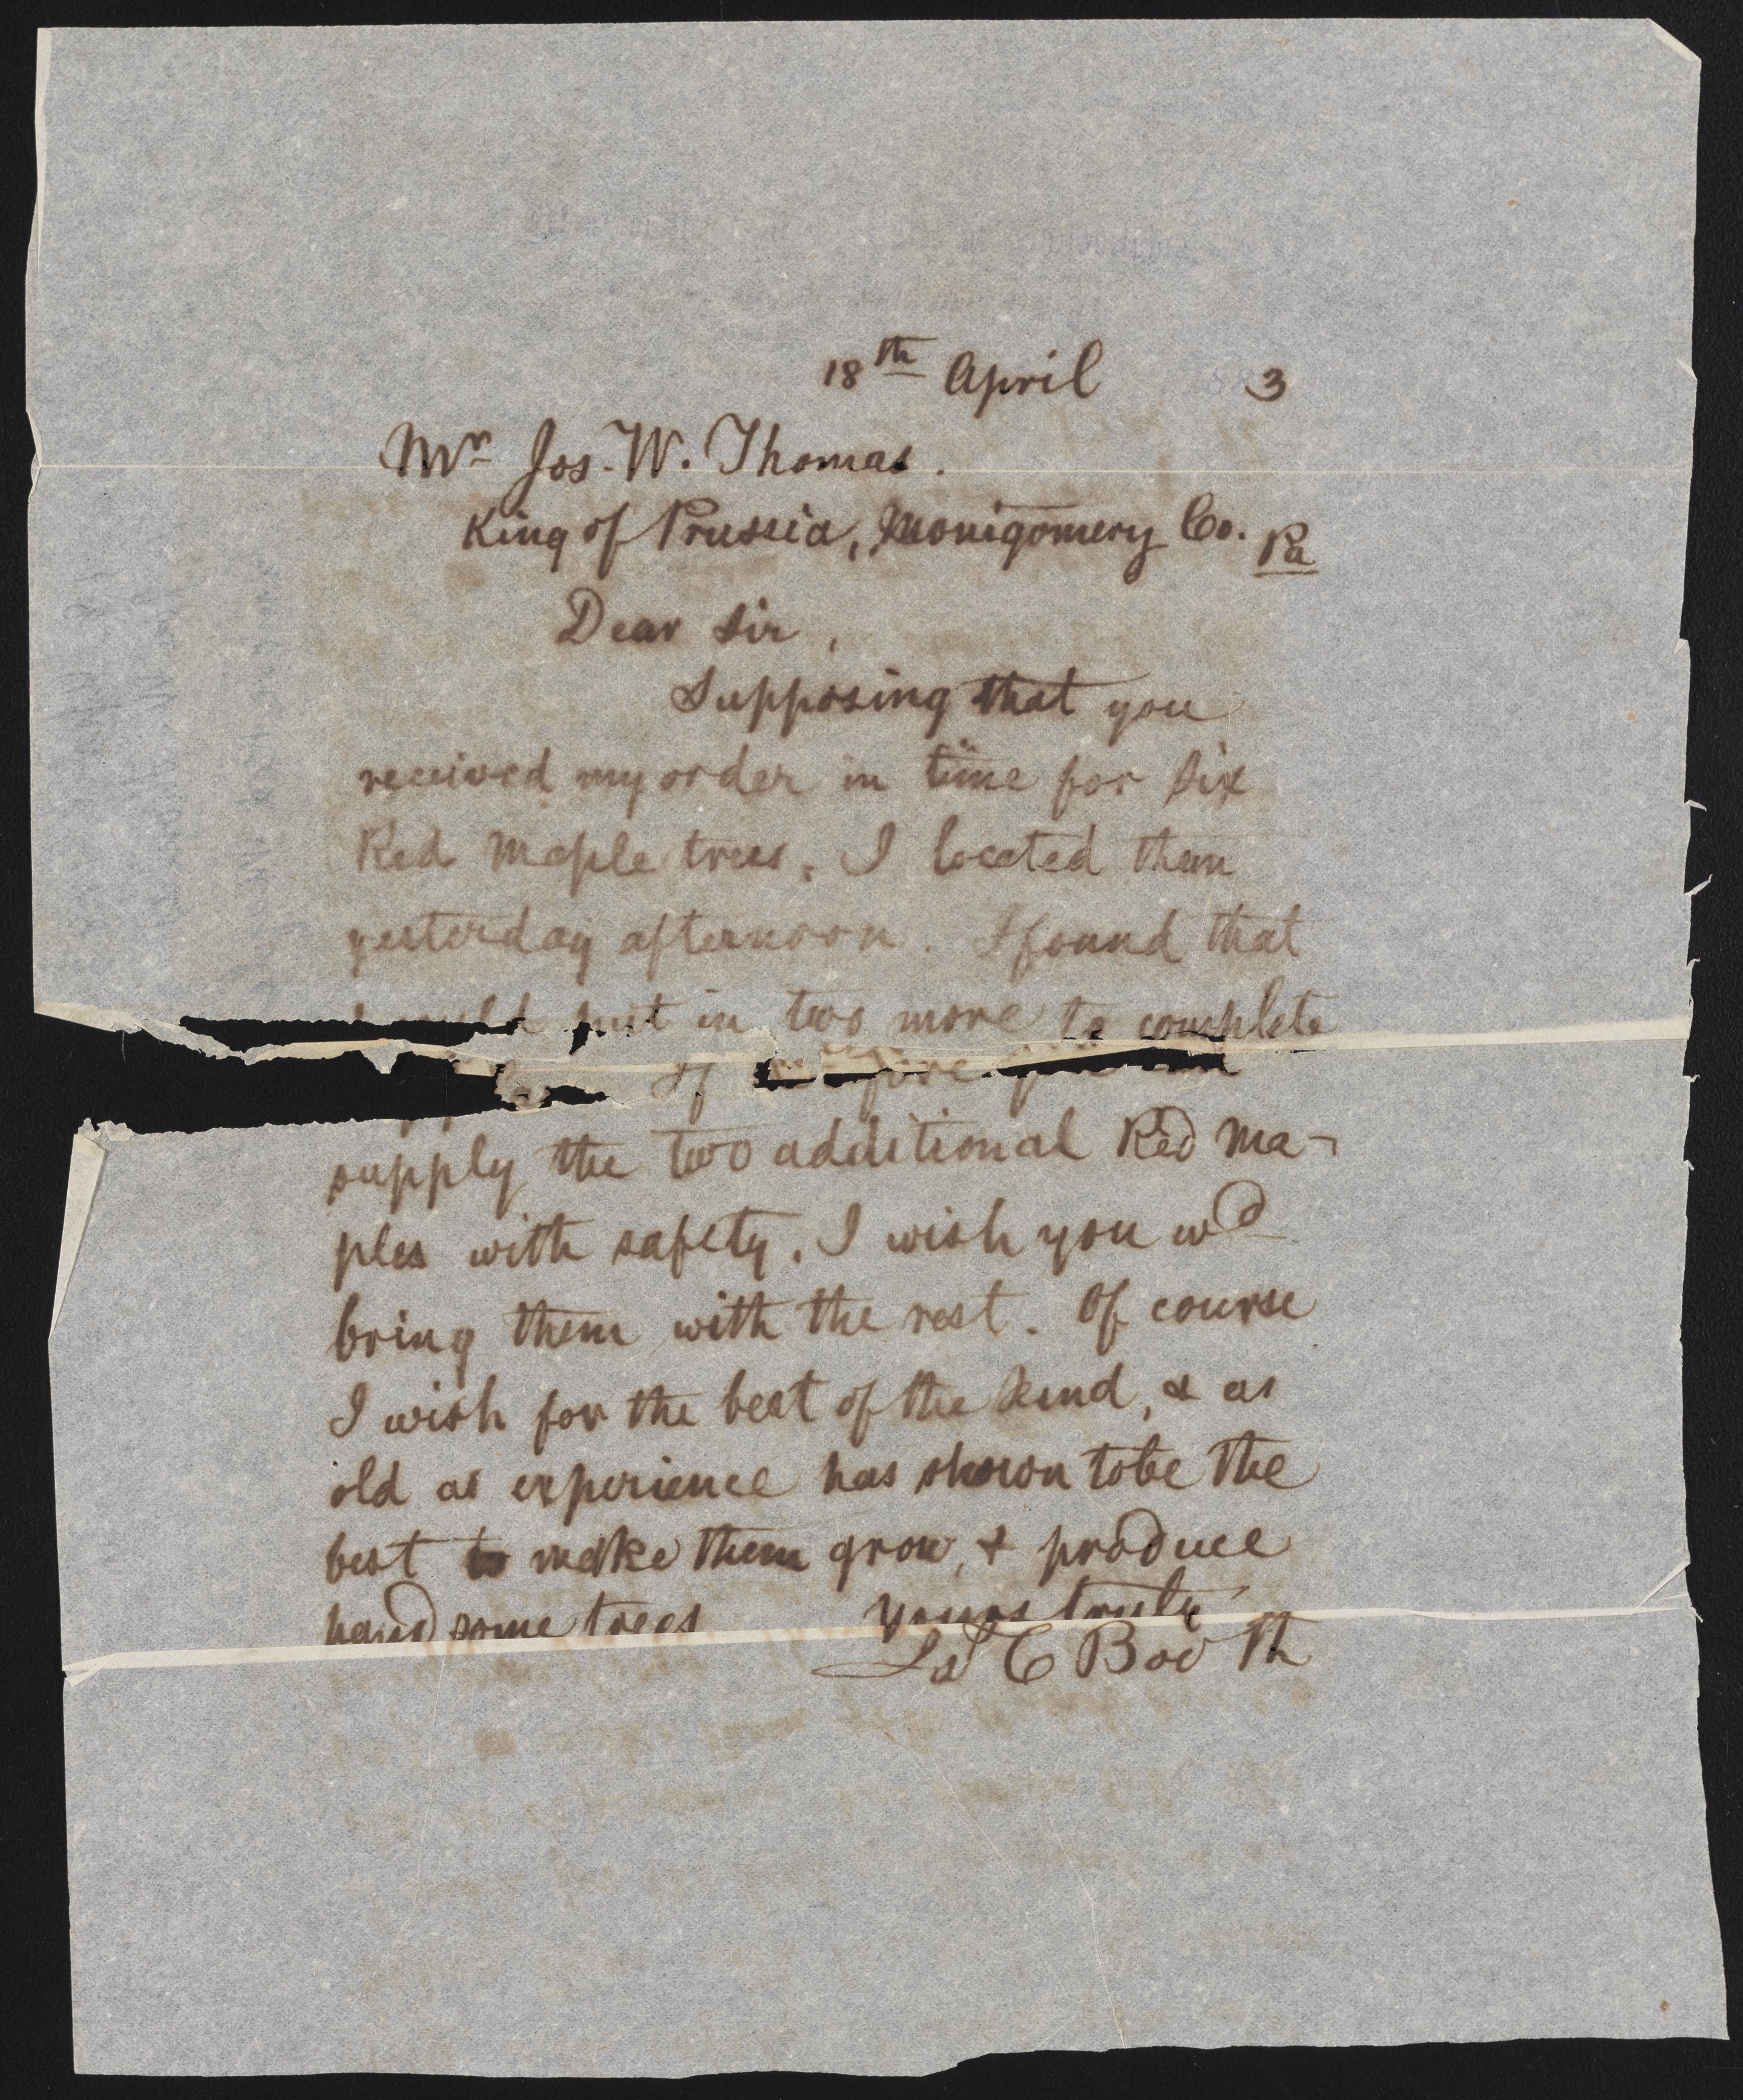 18th April 188 3
Mr Jos. W. Thomas.
King of Prussia, Montgomery Co. Pa
Dear Sir,
Supposing that you
received my order in time for six
Red Maple trees, I located them
yesterday afternoon. I found that
I could put in two more to complete
If therefore you can
supply the two additional Red Ma-
ples with safety, I wish you wd
bring them with the rest. Of course
I wish for the best of the kind, & as
old as experience has shown to be the
best to make them grow, & produce
handsome trees Yours truly
Jas C Booth